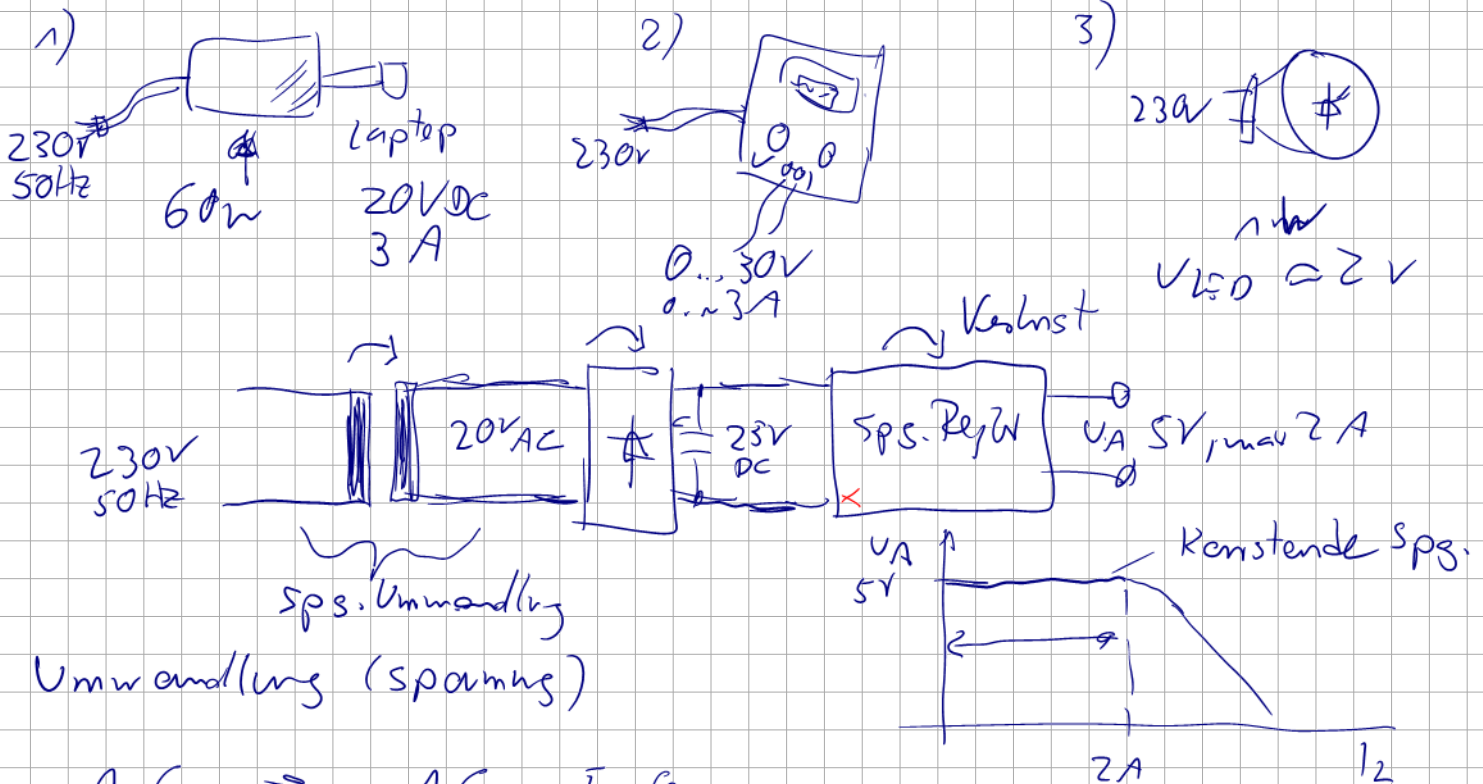 1)
230V
50Hz
60W
Laptop
20VDC
3A
2)
230V
0...30V
0...3A
3)
230V
1W
ULED ≈ 2V
Verlust
230V
50Hz
20V AC
23V
DC
Sps. Regler
UA 5V, max 2A
Sps. Umwandlug
Umwandlung (Spannung)
UA
5V
Konstende Spg.
2A
I2